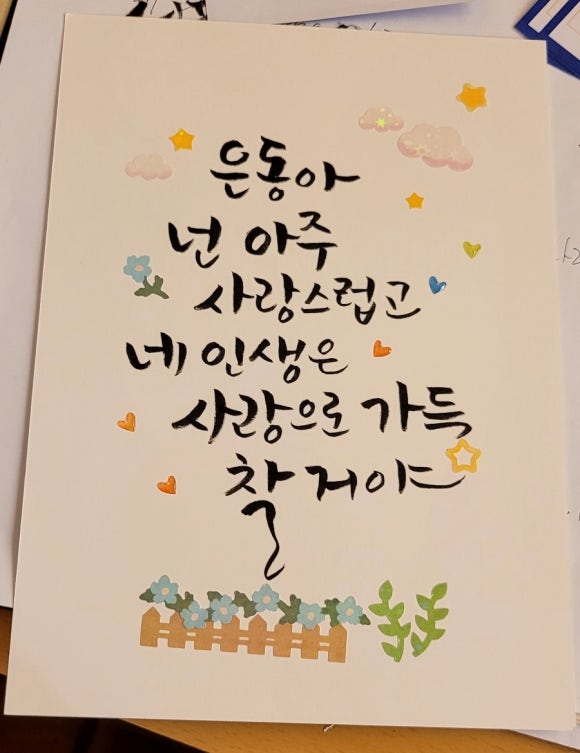 은동아
넌 아주
사랑스럽고
네 인생은
사랑으로 가득
찰 거야